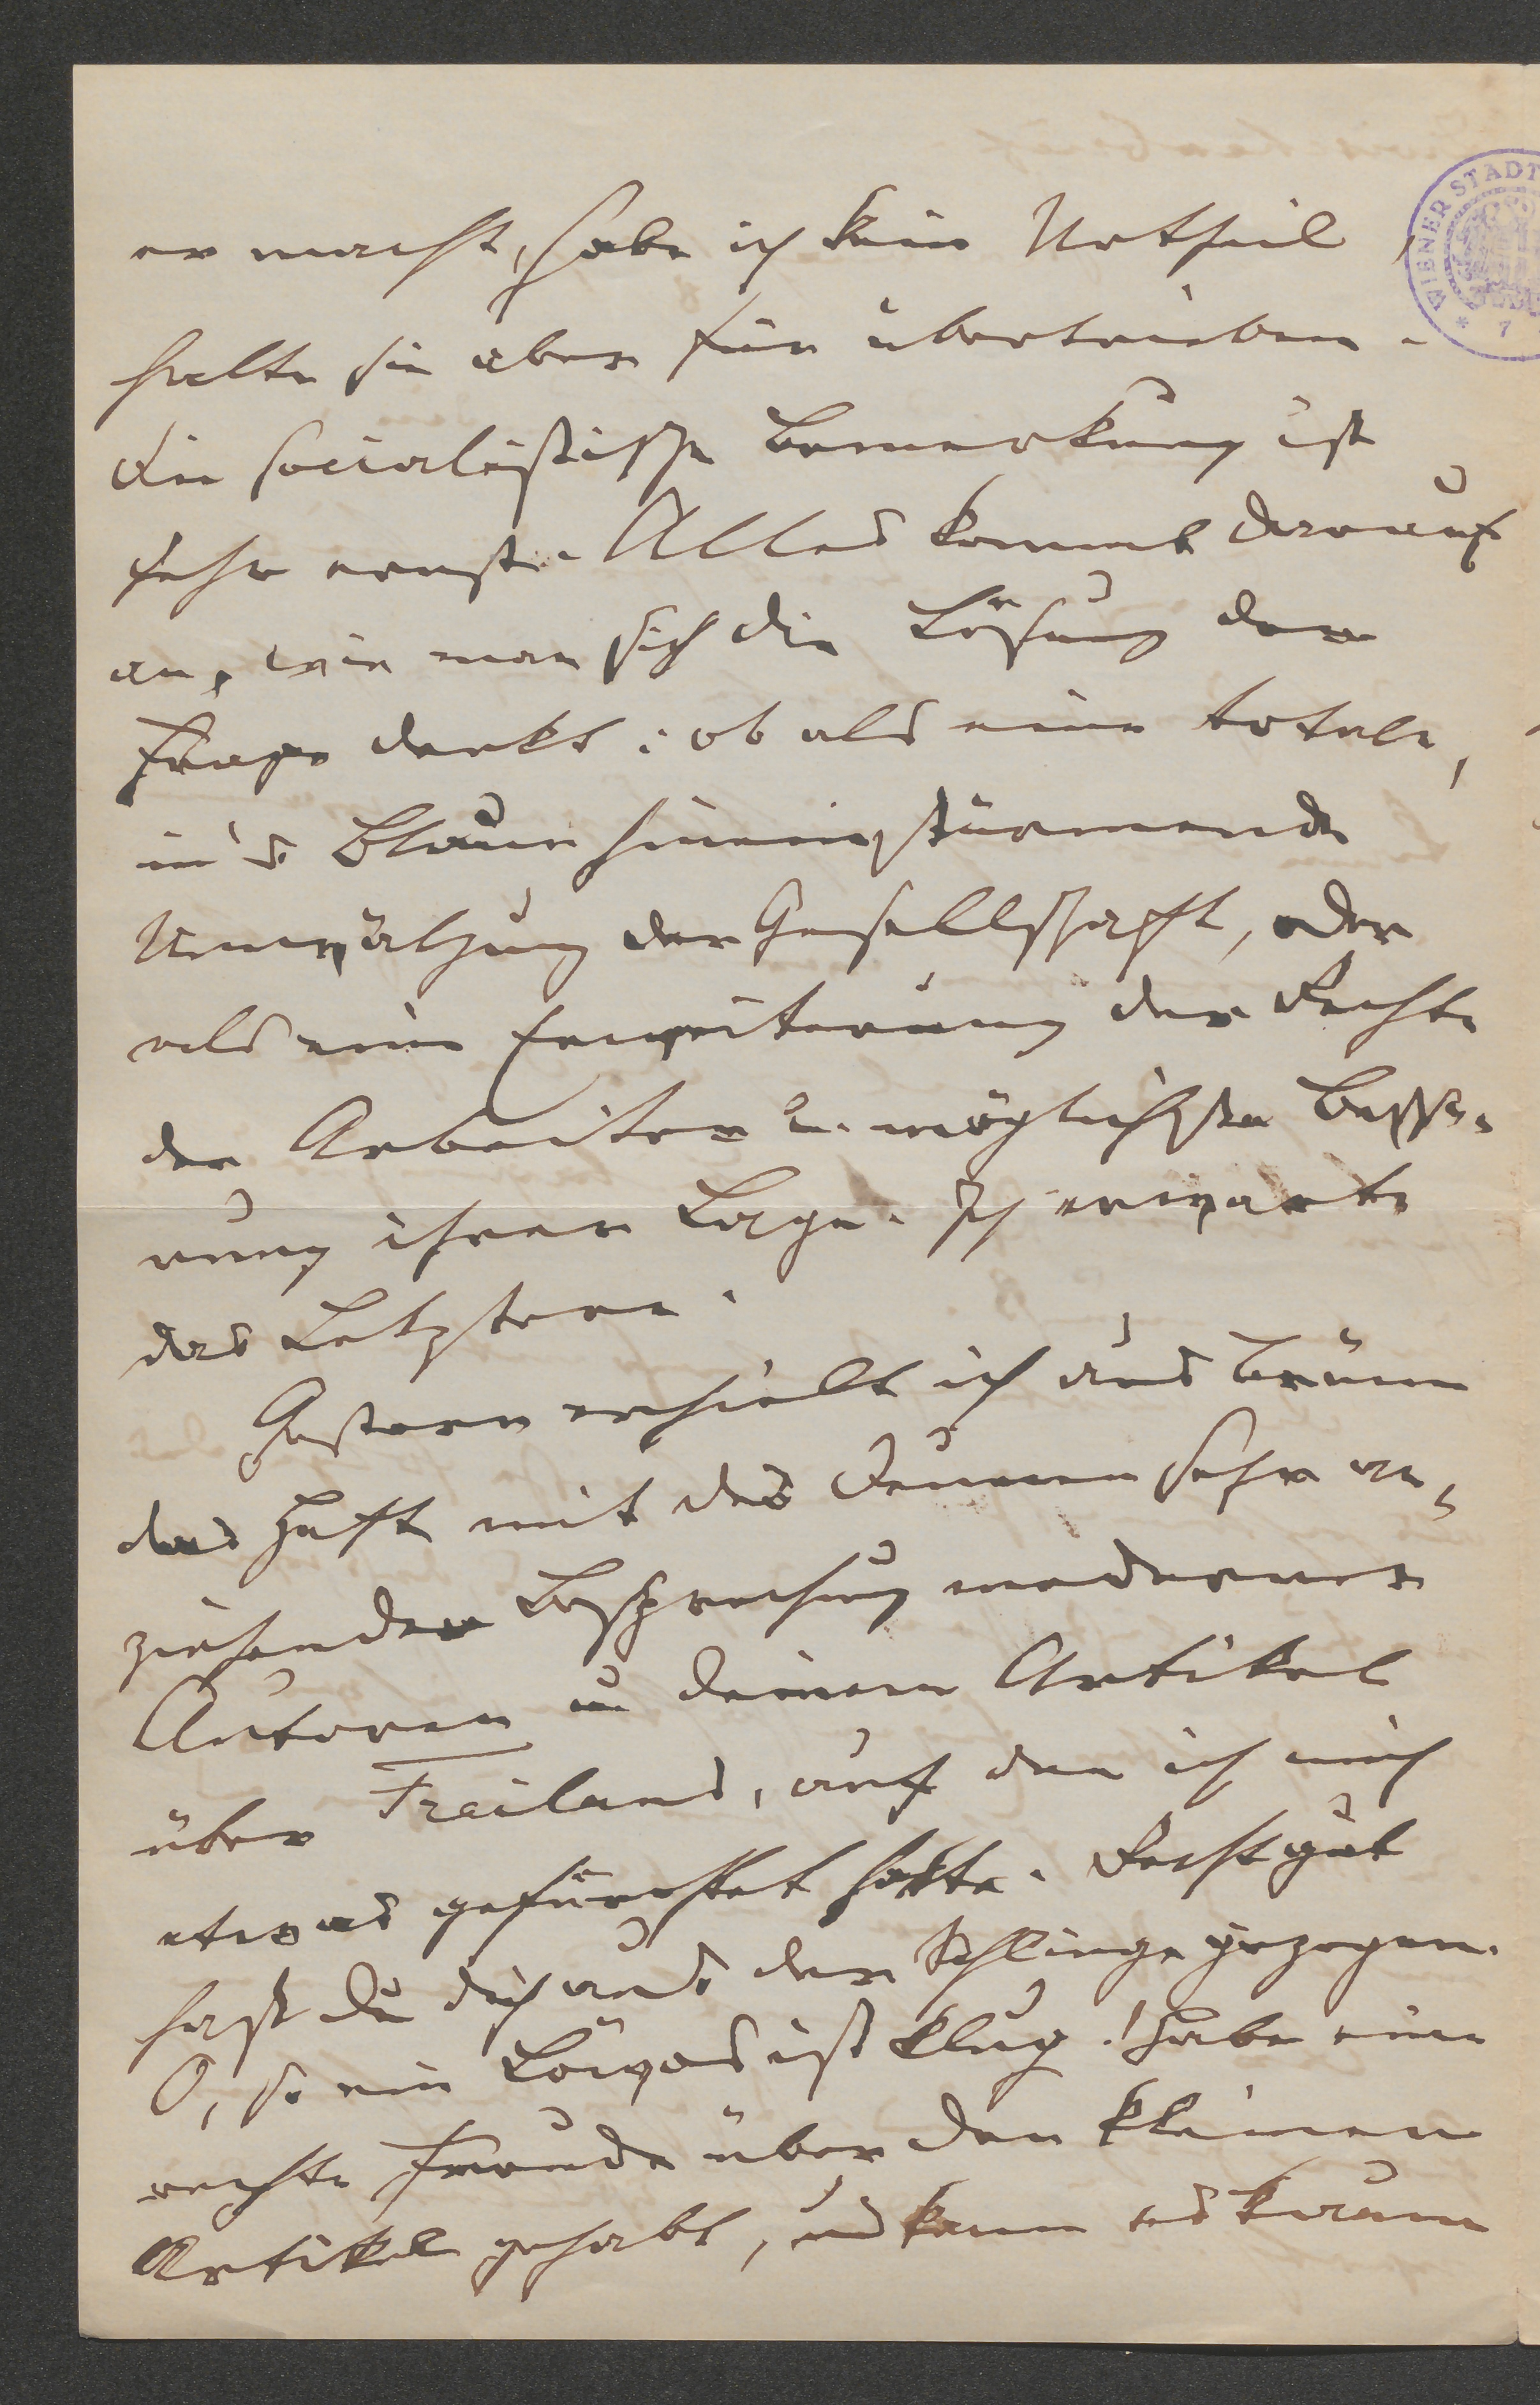 er macht, habe ich kein Urtheil,
halte sie aber für übertrieben.
Die socialistische Bemerkung ist
sehr ernst. Alles kommt darauf
an, wie man sich die Lösung der
Frage denkt: ob als eine totale,
in's Blaue hineinstürmende
Umwälzung der Gesellschaft, oder
als eine Erweiterung der Rechte
der Arbeiter u. möglichste Besse-
rung ihrer Lage. Ich erwarte
das Letztere.
Gestern erhielt ich aus Brünn
das Heft mit des sehr an-
ziehender Besprechung moderner
Autoren u deinem Artikel
über Freiland, auf den ich mich
etwas gefürchtet hatte. Recht gut
hast du dich aus der Schlinge gezogen.
O, so ein ist klug! Habe eine
rechte Freude über den kleinen
Artikel gehabt, und kann es kaum
WIENER STADT
* 7